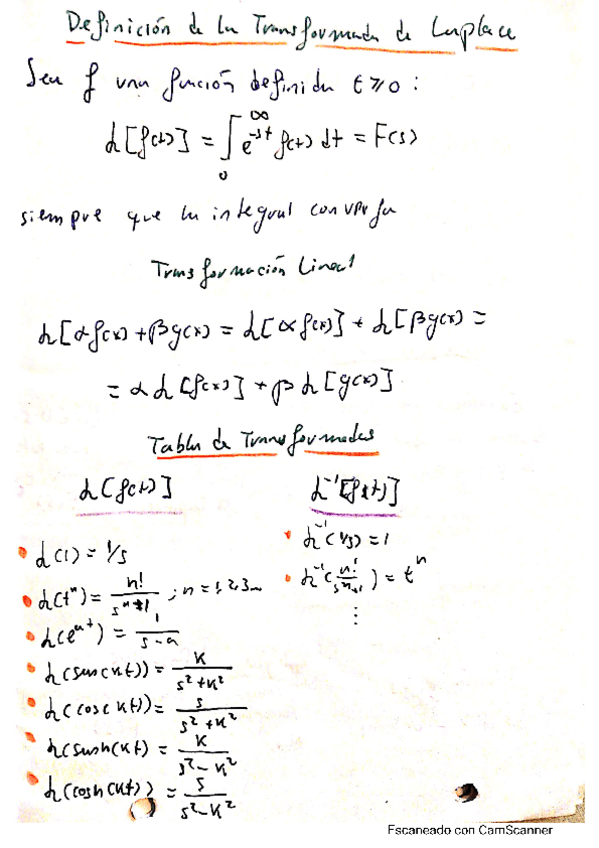 Definición de la Transformada de Laplace
Sea f una función definida t≥0:
L[f(t)] = ∫₀^∞ e^-st f(t) dt = F(s)
siempre que la integral converja
Transformación Lineal
L[αf(x)+βg(x)] = L[αf(x)] + L[βg(x)] =
= αL[f(x)] + βL[g(x)]
Tabla de Transformadas
L[f(t)]
L⁻¹[f(t)]
L(1) = 1/s
L(tⁿ) = n!/s^n+1 ; n = 1,2,3...
L(e^at) = 1/s-a
L(sen(kt)) = k/s²+k²
L(cos(kt)) = s/s²+k²
L(senh(kt) = k/s²-k²
L(cosh(kt)) = s/s²-k²
L⁻¹(1/s) = 1
L⁻¹(n!/s^n+1) = tⁿ
⋮
Escaneado con CamScanner